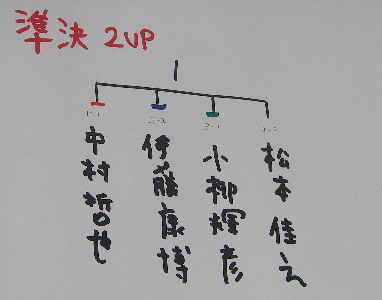 準決 2UP
中村哲也
伊藤康博
小柳輝彦
松本佳え